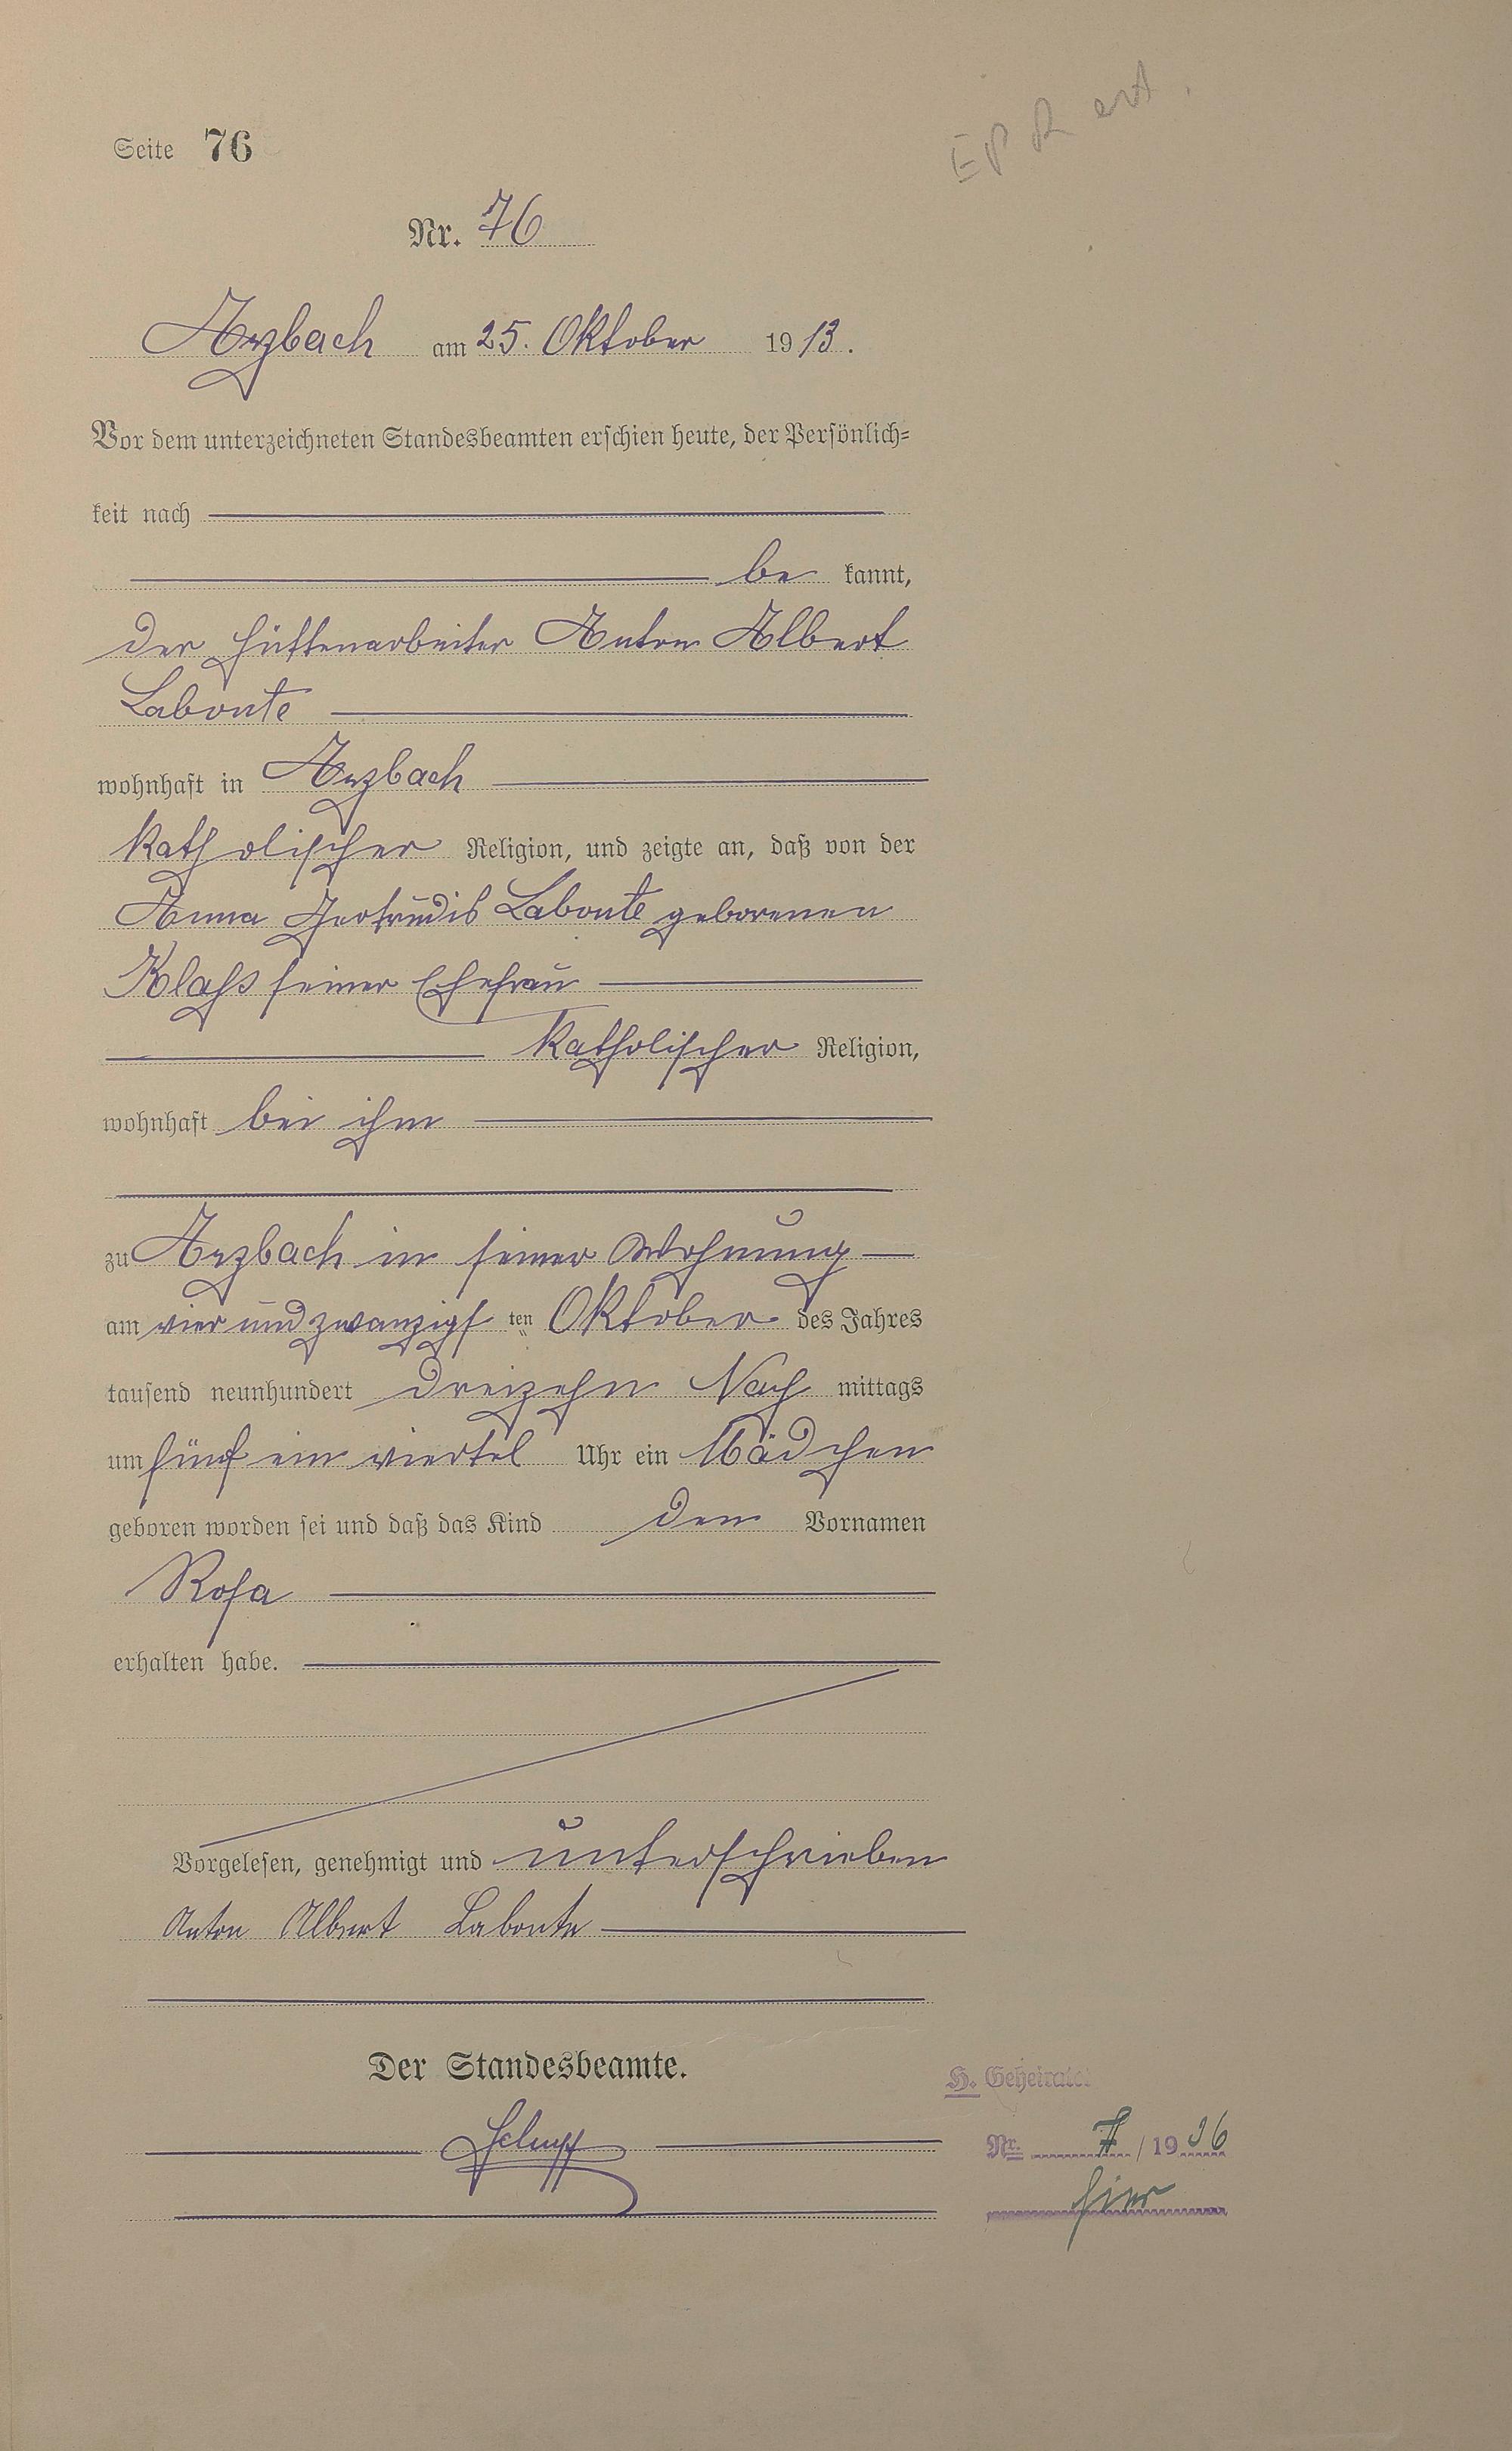 Seite 76
Nr. 76
Arzbach am 25. Oktober 1913.
Vor dem unterzeichneten Standesbeamten erschien heute, der Persönlich=
keit nach
be kannt,
der Hüttenarbeiter Anton Albert
Labonte
wohnhaft in Arzbach
katholischer Religion, und zeigte an, daß von der
Anna Gertrudis Labonte geborenen
Klaß seiner Ehefrau
katholischer Religion,
wohnhaft bei ihm
zu Arzbach in seiner Wohnung
am vier und zwanzigsten Oktober des Jahres
tausend neunhundert dreizehn Nachmittags
um fünf ein viertel Uhr ein Mädchen
geboren worden sei und daß das Kind den Vornamen
Rosa
erhalten habe.
Vorgelesen, genehmigt und unterschrieben
Anton Albert Labonte
Der Standesbeamte.
H. Geheiratet
Nr. 7 / 1936
hier